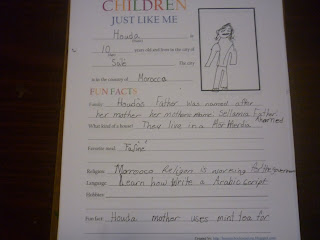 CHILDREN
JUST LIKE ME
Houda is
(Name)
10 years old and lives in the city of
Salé The city
is in the country of Morocco
FUN FACTS
Family: Houdas Father was named after
her mother. her mothers name Sellama Father
What kind of a house? They live in a
Favorite meal:
Religion: Morrocco Religion is
Language: Learn how Write a Arabic script
Hobbies:
Fun fact: Houda mother uses mint tea for